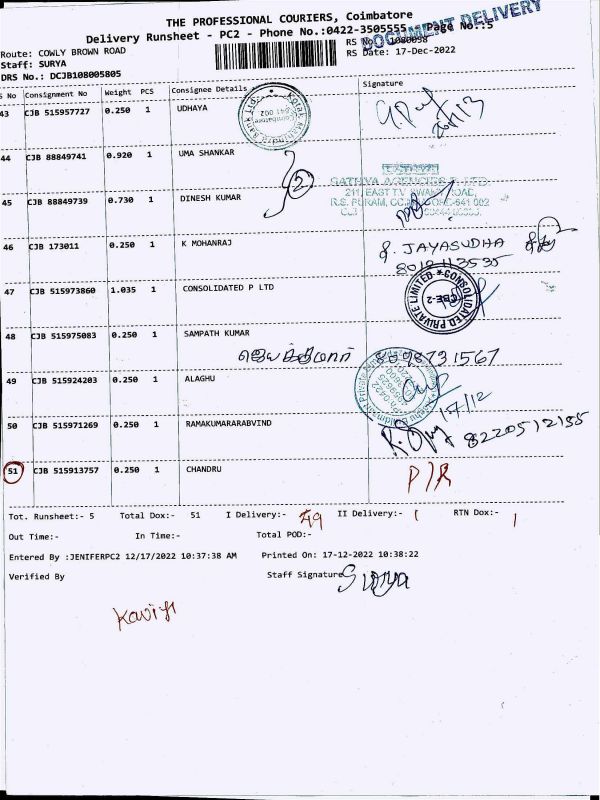 THE PROFESSIONAL COURIERS, Coimbatore
Delivery Runsheet - PC2 - Phone No.:0422-3505555 - Page No.:5
DOCUMENT DELIVERY
Route: COWLY BROWN ROAD
RS No.: 1080058
Staff: SURYA
RS Date: 17-Dec-2022
DRS No.: DCJB108005805
S No Consignment No Weight PCS Consignee Details Signature
43 CJB 515957727 0.250 1 UDHAYA
Coimbatore
641 002
44 CJB 88849741 0.920 1 UMA SHANKAR
2
45 CJB 88849739 0.730 1 DINESH KUMAR
46 CJB 173011 0.250 1 K MOHANRAJ
JAYASUDHA
47 CJB 515973860 1.035 1 CONSOLIDATED P LTD
CONSOLIDATED PRIVATE LIMITED
CBE-2
48 CJB 515975083 0.250 1 SAMPATH KUMAR
ஜெயக்குமார் 8098731567
49 CJB 515924203 0.250 1 ALAGHU
17/12
50 CJB 515971269 0.250 1 RAMAKUMARARABVIND
51 CJB 515913757 0.250 1 CHANDRU
P/R
Tot. Runsheet:- 5 Total Dox:- 51 I Delivery:- 49 II Delivery:- 1 RTN Dox:- 1
Out Time:- In Time:- Total POD:-
Entered By :JENIFERPC2 12/17/2022 10:37:38 AM Printed On: 17-12-2022 10:38:22
Verified By Staff Signature Surya